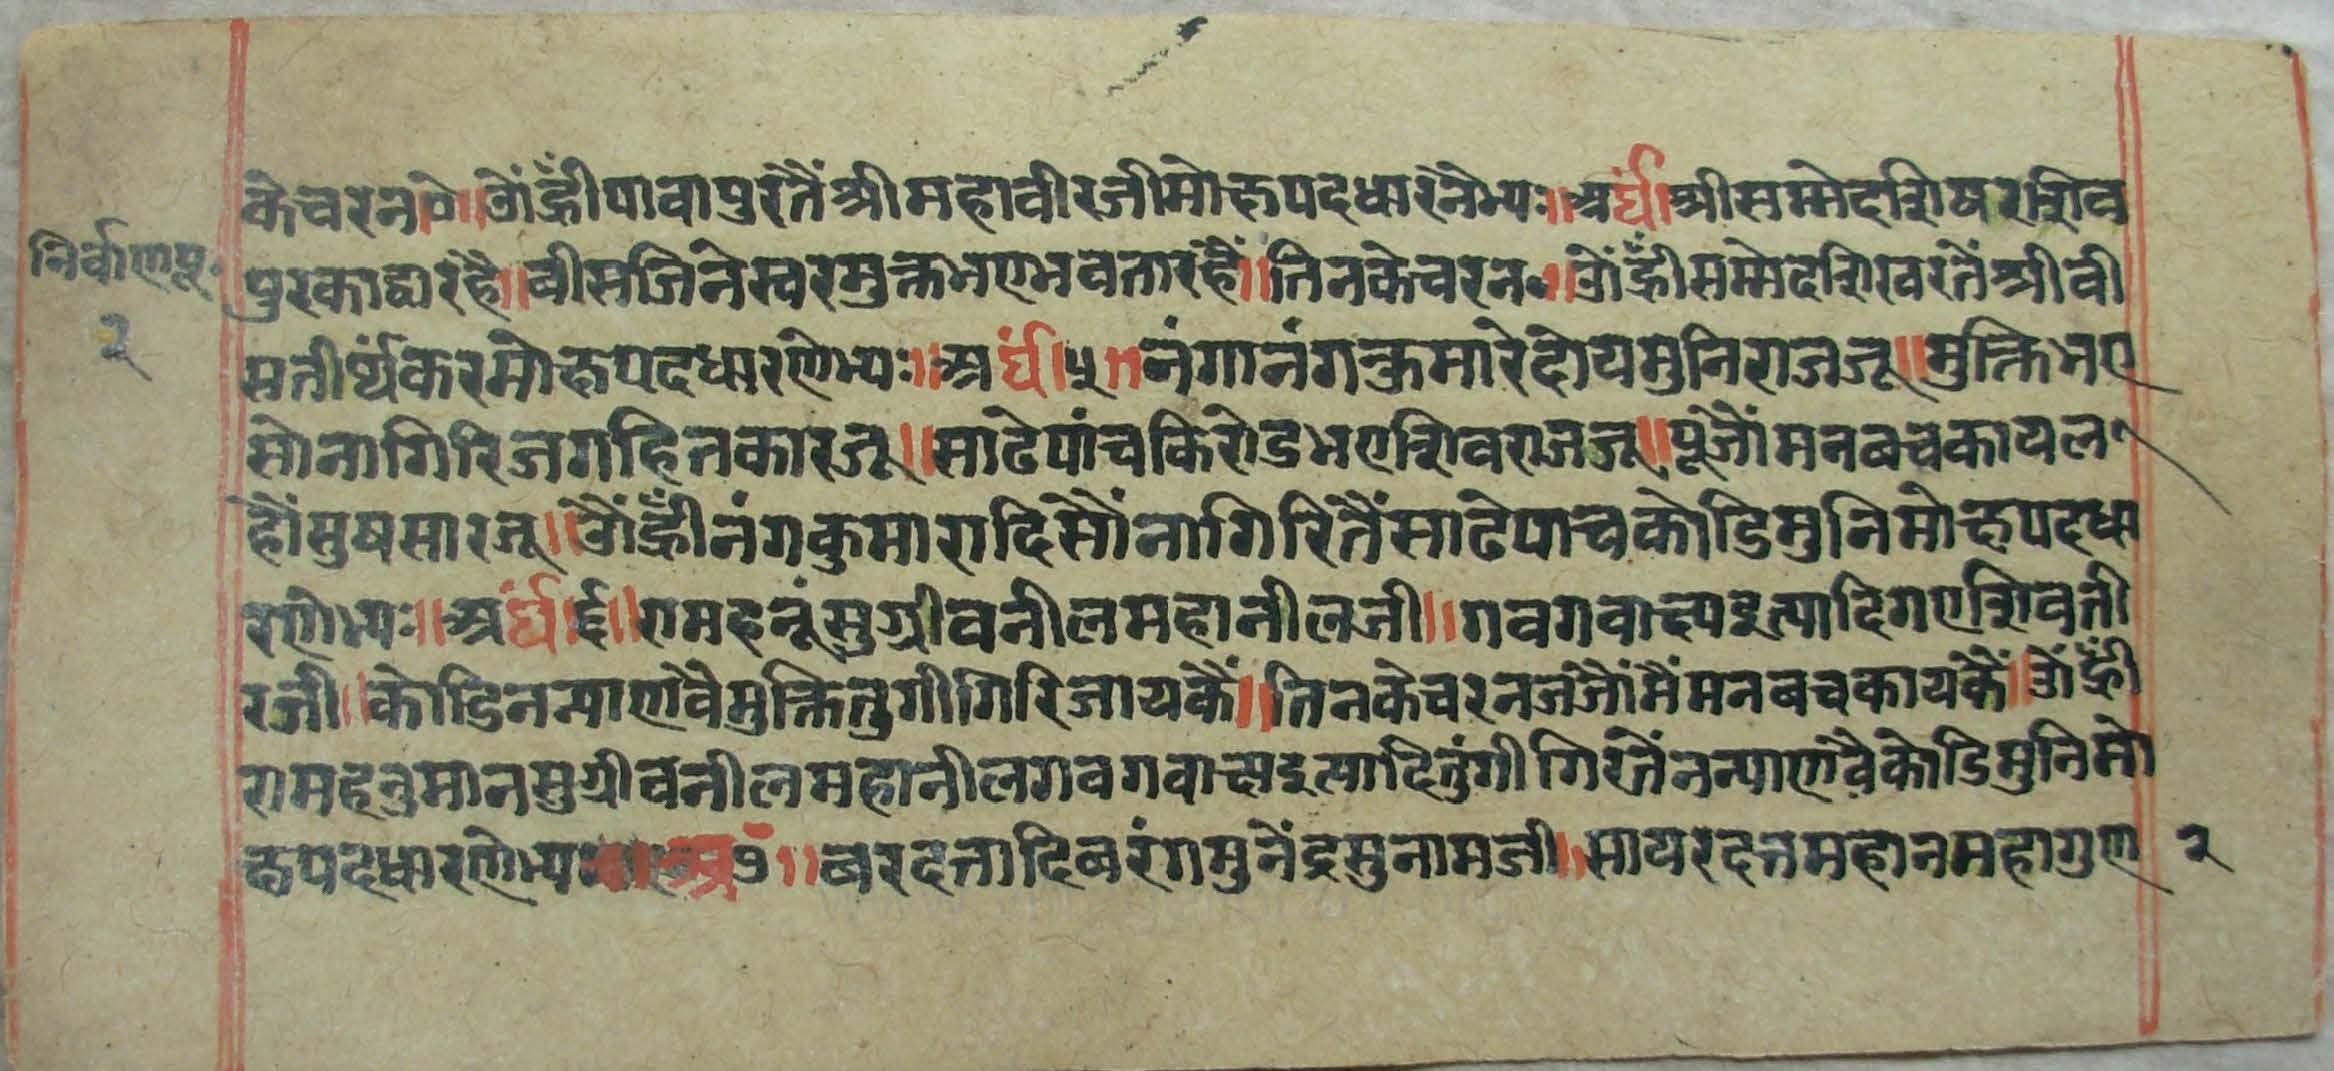 के चरन।०॥ ओं ह्रीं पावापुरतैं श्री महावीरजी मोक्षपदधारनेभ्यः॥ अर्घं। श्री सम्मेदशिषर शिव
निर्वाणपू॰
२
पुरका द्वार हैं॥ बीस जिनेस्वर मुक्त भए भवतार हैं॥ तिनके चरन०॥ ओं ह्रीं सम्मेदशिखरतैं श्री वी
स तीर्थंकर मोक्षपदधारणेभ्यः॥ अर्घं। ५॥ नंगानंगकुमारे दोय मुनिराज जू॥ मुक्ति भए
सोनागिरि जगहितकार जू॥ साढे पांच किरोड भए शिवराज जू॥ पूजौं मन बच काय ल
हौं सुषसार जू॥ ओं ह्रीं नंगकुमारादि सौंनागिरितैं साढे पाच कोडि मुनि मोक्षपदधा
रणेभ्यः॥ अर्घं। ६॥ राम हनूं सुग्रीव नील महानील जी॥ गव गवाक्ष्य इत्यादि गए शिव ती
र जी॥ कोडि नन्याणवै मुक्ति तुगीगिरि जाय कैं॥ तिनके चरन जजौं मैं मन बच काय कैं॥ ओं ह्रीं
राम हनुमान सुग्रीव नील महानील गव गवाक्ष इत्यादि तुंगीगिरतैं नन्याणवै कोडि मुनि मो
क्षपदधारणेभ्य अ ७॥ बरदत्तादि बरंग मुनेंद्र सुनाम जी॥ सायरदत्त महान महागुण
२